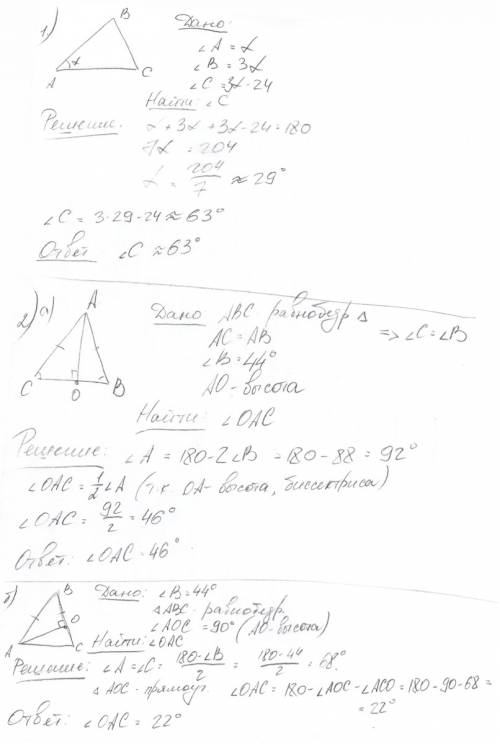 1)
B
A
α
C
Дано:
∠A = α
∠B = 3α
∠C = 3α-24
Найти: ∠C
Решение. α+3α+3α-24=180
7α = 204
α = 204/7 ≈ 29°
∠C = 3·29-24≈63°
Ответ ∠C ≈63°
2) а)
A
C
O
B
Дано ABC равнобедр Δ
AC = AB => ∠C=∠B
∠B = 44°
AO-высота
Найти: ∠OAC
Решение: ∠A = 180-2∠B = 180-88 = 92°
∠OAC = 1/2∠A (т.к. OA-высота, биссектриса)
∠OAC = 92/2 = 46°
Ответ: ∠OAC = 46°
б)
B
O
A
C
Дано: ∠B=44°
ΔABC - равнобедр.
∠AOC = 90° (AO-высота)
Найти: ∠OAC
Решение: ∠A=∠C= 180-∠B/2 = 180-44/2 = 68°
Δ AOC - прямоуг. ∠OAC = 180-∠AOC-∠ACO=180-90-68=
= 22°
Ответ: ∠OAC = 22°